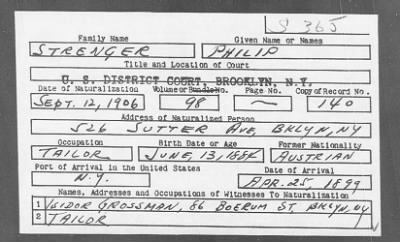 S 365
Family Name Given Name or Names
STRENGER PHILIP
Title and Location of Court
U. S. DISTRICT COURT, BROOKLYN, N.Y.
Date of Naturalization Volume or Bundle No. Page No. Copy of Record No.
SEPT. 12, 1906 98 — 140
Address of Naturalized Person
526 SUTTER AVE, BKLYN, NY
Occupation Birth Date or Age Former Nationality
TAILOR JUNE, 13, 1884 AUSTRIAN
Port of Arrival in the United States Date of Arrival
N.Y. APR. 25, 1899
Names, Addresses and Occupations of Witnesses To Naturalization
1 ISIDOR GROSSMAN, 86 BOERUM ST. BKLYN, NY
2 TAILOR